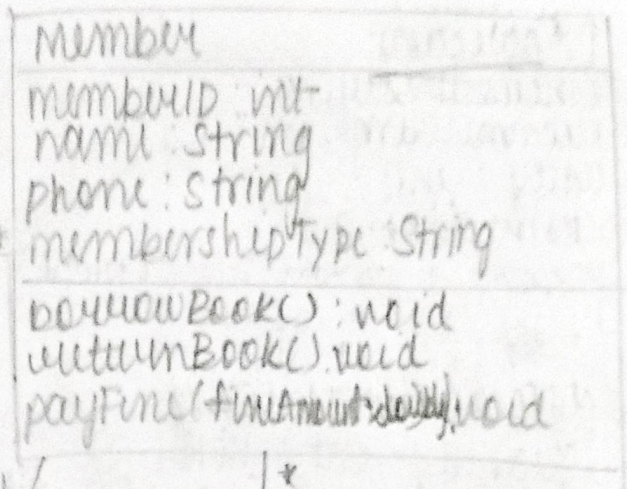 Member
memberID : int
name : String
phone : String
membershipType : String
borrowBook() : void
returnBook() : void
payFine(fineAmount: void
*